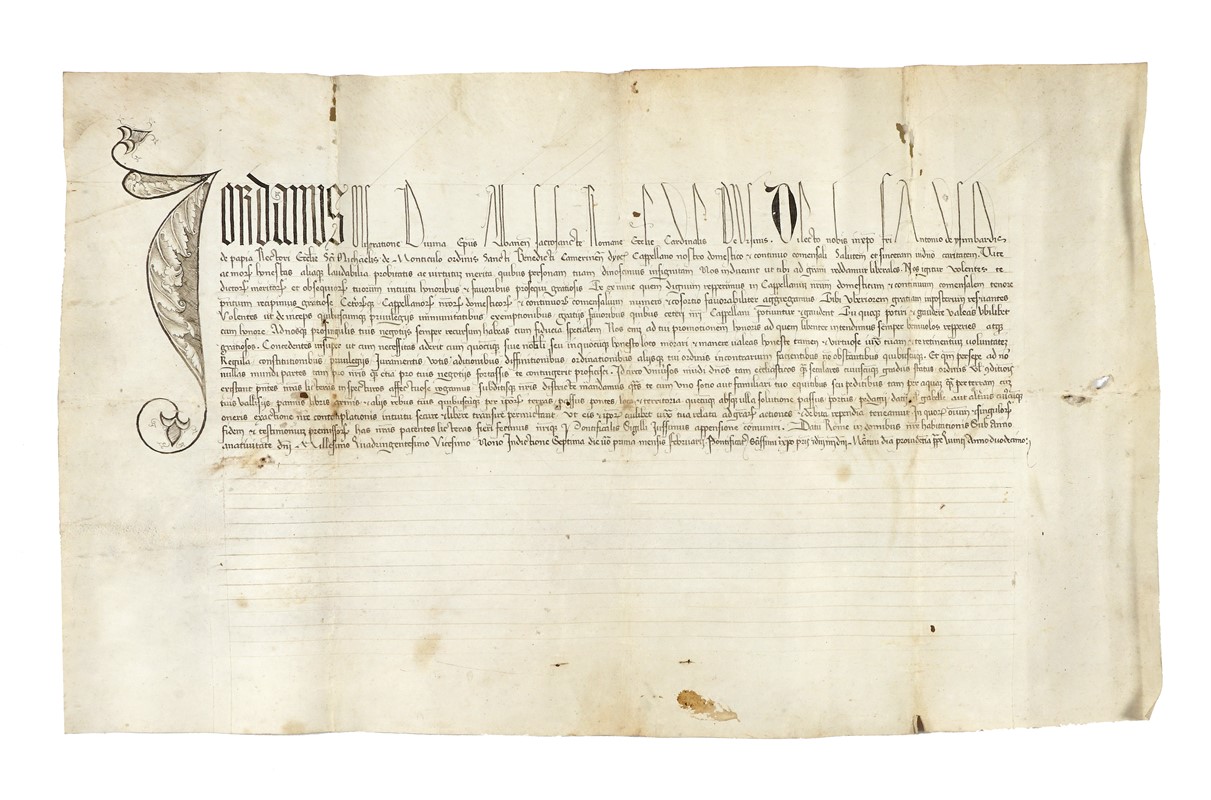 Jordanus Miseratione Divina Epus Albanen Sacrosancte Romane Eccłie Cardinalis De Ursinis. Dilecto nobis in xpo fri Antonio de
de papia Rectori Eccłie Sci Michaelis de Monticulo ordinis Sancti Benedicti Camerinen dyoc Cappellano nostro domestico et continuo comensali Salutem et sinceram in dno caritatem. Vite
ac morum honestas aliaque laudabilia probitatis ac virtutum merita quibus personam tuam dinoscimus insignitam Nos inducunt ut tibi ad gram reddamur liberales. Nos igitur volentes te
dictorum meritorum et obsequiorum tuorum intuitu honoribus et favoribus prosequi gratiosis Te quem dignum reperimus in Cappellanum nrum domesticum et continuum comensalem tenore
pntium recipimus gratiose Ceterorumque Cappellanorum nrorum domesticorum et continuorum comensalium numero et consortio favorabiliter aggregamus Tibi Uberiorem gratiam
Volentes ut de inceps quibuscumque privilegijs immunitatibus exemptionibus gratijs favoribus quibus ceteri nri Cappellani potiuntur et gaudent Tu quoque potiri et gaudere valeas ubilibet
cum honore Ad nosque pro singulis tuis negotijs semper recursum habeas cum fiducia speciali Nos enim ad tui promotionem honoris ad quem libenter intendimus semper benivolos reperies atque
gratiosos. Concedentes insuper ut cum necessitas aderit cum quocumque sive nobili seu in quocumque honesto loco morari et manere valeas honeste tamen et virtuose iuxta tuam et retinentium voluntatem
Regula constitutionibus privilegijs Juramentis votis additionibus diffinitionibus ordinationibus alijsque tui ordinis in contrarium facientibus non obstantibus quibuscumque. Et qm persepe ad non
nullas mundi partes tam pro nris quam etiam pro tuis negotijs fortassis te contingerit proficisci. Idcirco Universos
existant pntes nras litteras inspecturos affectuose rogamus Subditisque nris districte mandamus te cum uno sotio aut familiari tuo equitibus seu peditibus tam per aquam quam per terram cum
tuis vallisijs pannis libris armis et alijs rebus tuis quibuscumque per ipsorum terras passus pontes loca et territoria quecumque absque ulla solutione passus portus pedagij datij gabelle aut alterius cuiuscumque
oneris exactione nre contemplationis intuitu secure et libere transire permittant Ut eis et ipsorum cuilibet iuxta tua relata ad gratiarum actiones et debita rependia teneamur In quorum omnium et singulorum
fidem et testimonium premissorum has nras patentes litteras fieri fecimus nrique Pontificalis Sigilli Jussimus appensione comuniri. Datum Rome in domibus nre habitationis Sub Anno
a nativitate dni Millesimo Quadringentesimo Vicesimo Nono Indictione Septima die vero prima mensis februarij Pontificatus Sctissimi in xpo pris et dni nri dni Martini dia providentia ppe Quinti Anno duodecimo